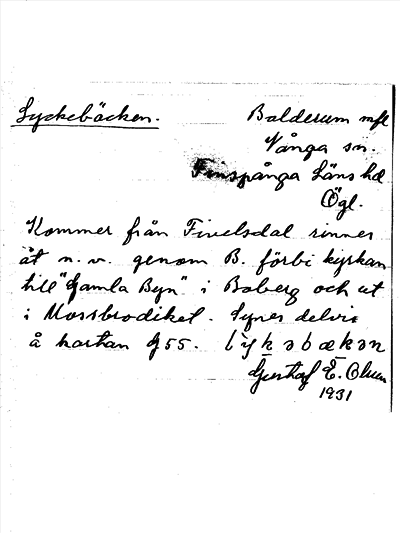 Lyckebäcken.
Balderum mfl
Vånga sn.
Finspånga Läns hd
Ögl.
Kommer från Finelsdal rinner
åt n. v. genom B. förbi kyrkan
till "Gamla Byn" i Boberg och ut
i Mossbrodiket. Synes delvis
å kartan G55. lykəbækən
Gustaf E. Olsen
1931